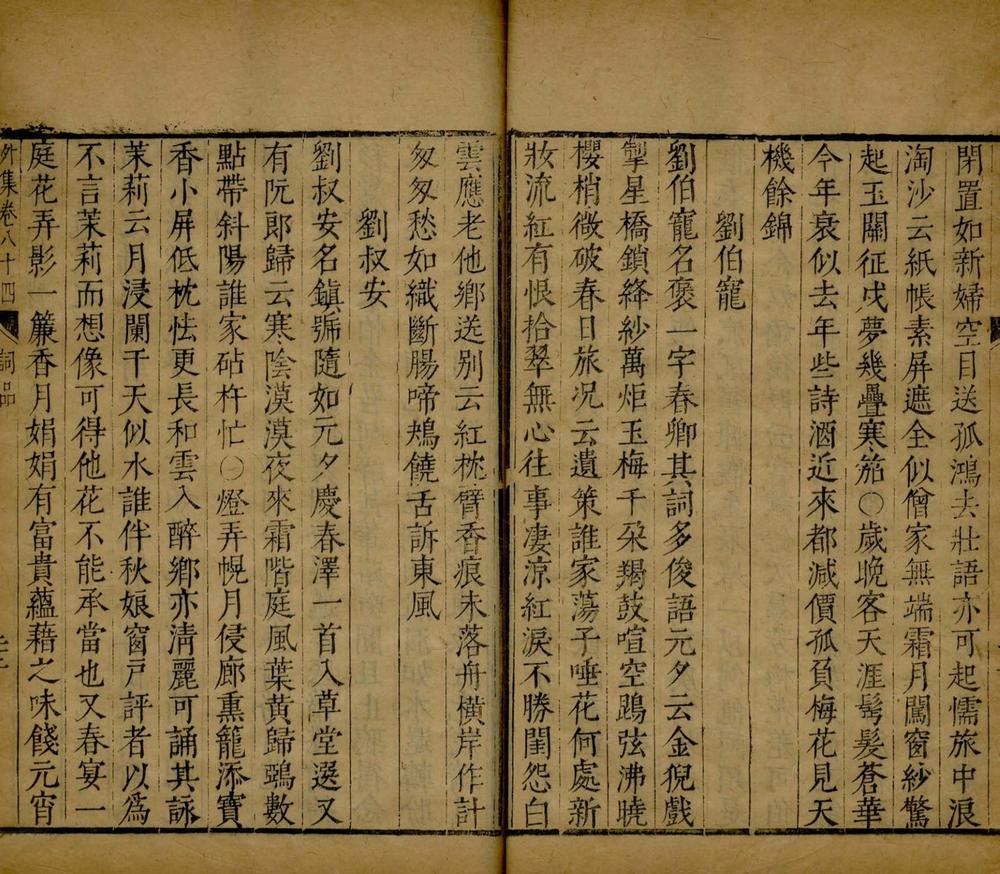 閉置如新婦空目送孤鴻去壯語亦可起懦旅中浪
淘沙云紙帳素屏遮全似僧家無端霜月闖窗紗驚
起玉關征戍夢幾疊寒笳〇歲晚客天涯髩髮蒼華
今年衰似去年些詩酒近來都減價孤負梅花見天
機餘錦
劉伯寵
劉伯寵名褒一字春卿其詞多俊語元夕云金猊戲
掣星橋鎖絳紗萬炬玉梅千朶羯鼓喧空鵾弦沸曉
櫻梢微破春日旅況云遺策誰家蕩子唾花何處新
妝流紅有恨拾翠無心往事凄涼紅淚不勝閨怨白
雲應老他鄉送别云紅枕臂香痕未落舟橫岸作計
匆匆愁如織斷腸啼鴂饒舌訴東風
劉叔安
劉叔安名鎮號隨如元夕慶春澤一首入草堂選又
有阮郎歸云寒陰漠漠夜來霜階庭風葉黃歸鴉數
點帶斜陽誰家砧杵忙〇燈弄幌月侵廊熏籠添寶
香小屏低枕怯更長和雲入醉鄉亦清麗可誦其詠
茉莉云月浸闌干天似水誰伴秋娘窗戶評者以爲
不言茉莉而想像可得他花不能承當也又春宴一
庭花弄影一簾香月娟娟有富貴蘊藉之味餞元宵
外集卷八十四 詞品